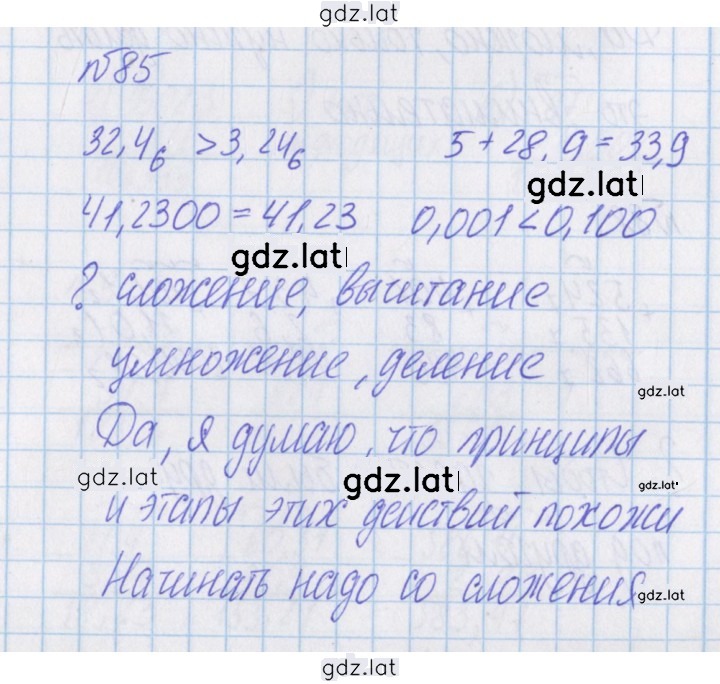 gdz.lat
№85
32,4₆ > 3,24₆ 5 + 28,9 = 33,9
gdz.lat
41,2300 = 41,23 0,001 < 0,100
gdz.lat
? сложение, вычитание
умножение, деление
gdz.lat
Да, я думаю, что принципы
gdz.lat gdz.lat gdz.lat
и этапы этих действий похожи
Начинать надо со сложения
gdz.lat
gdz.lat